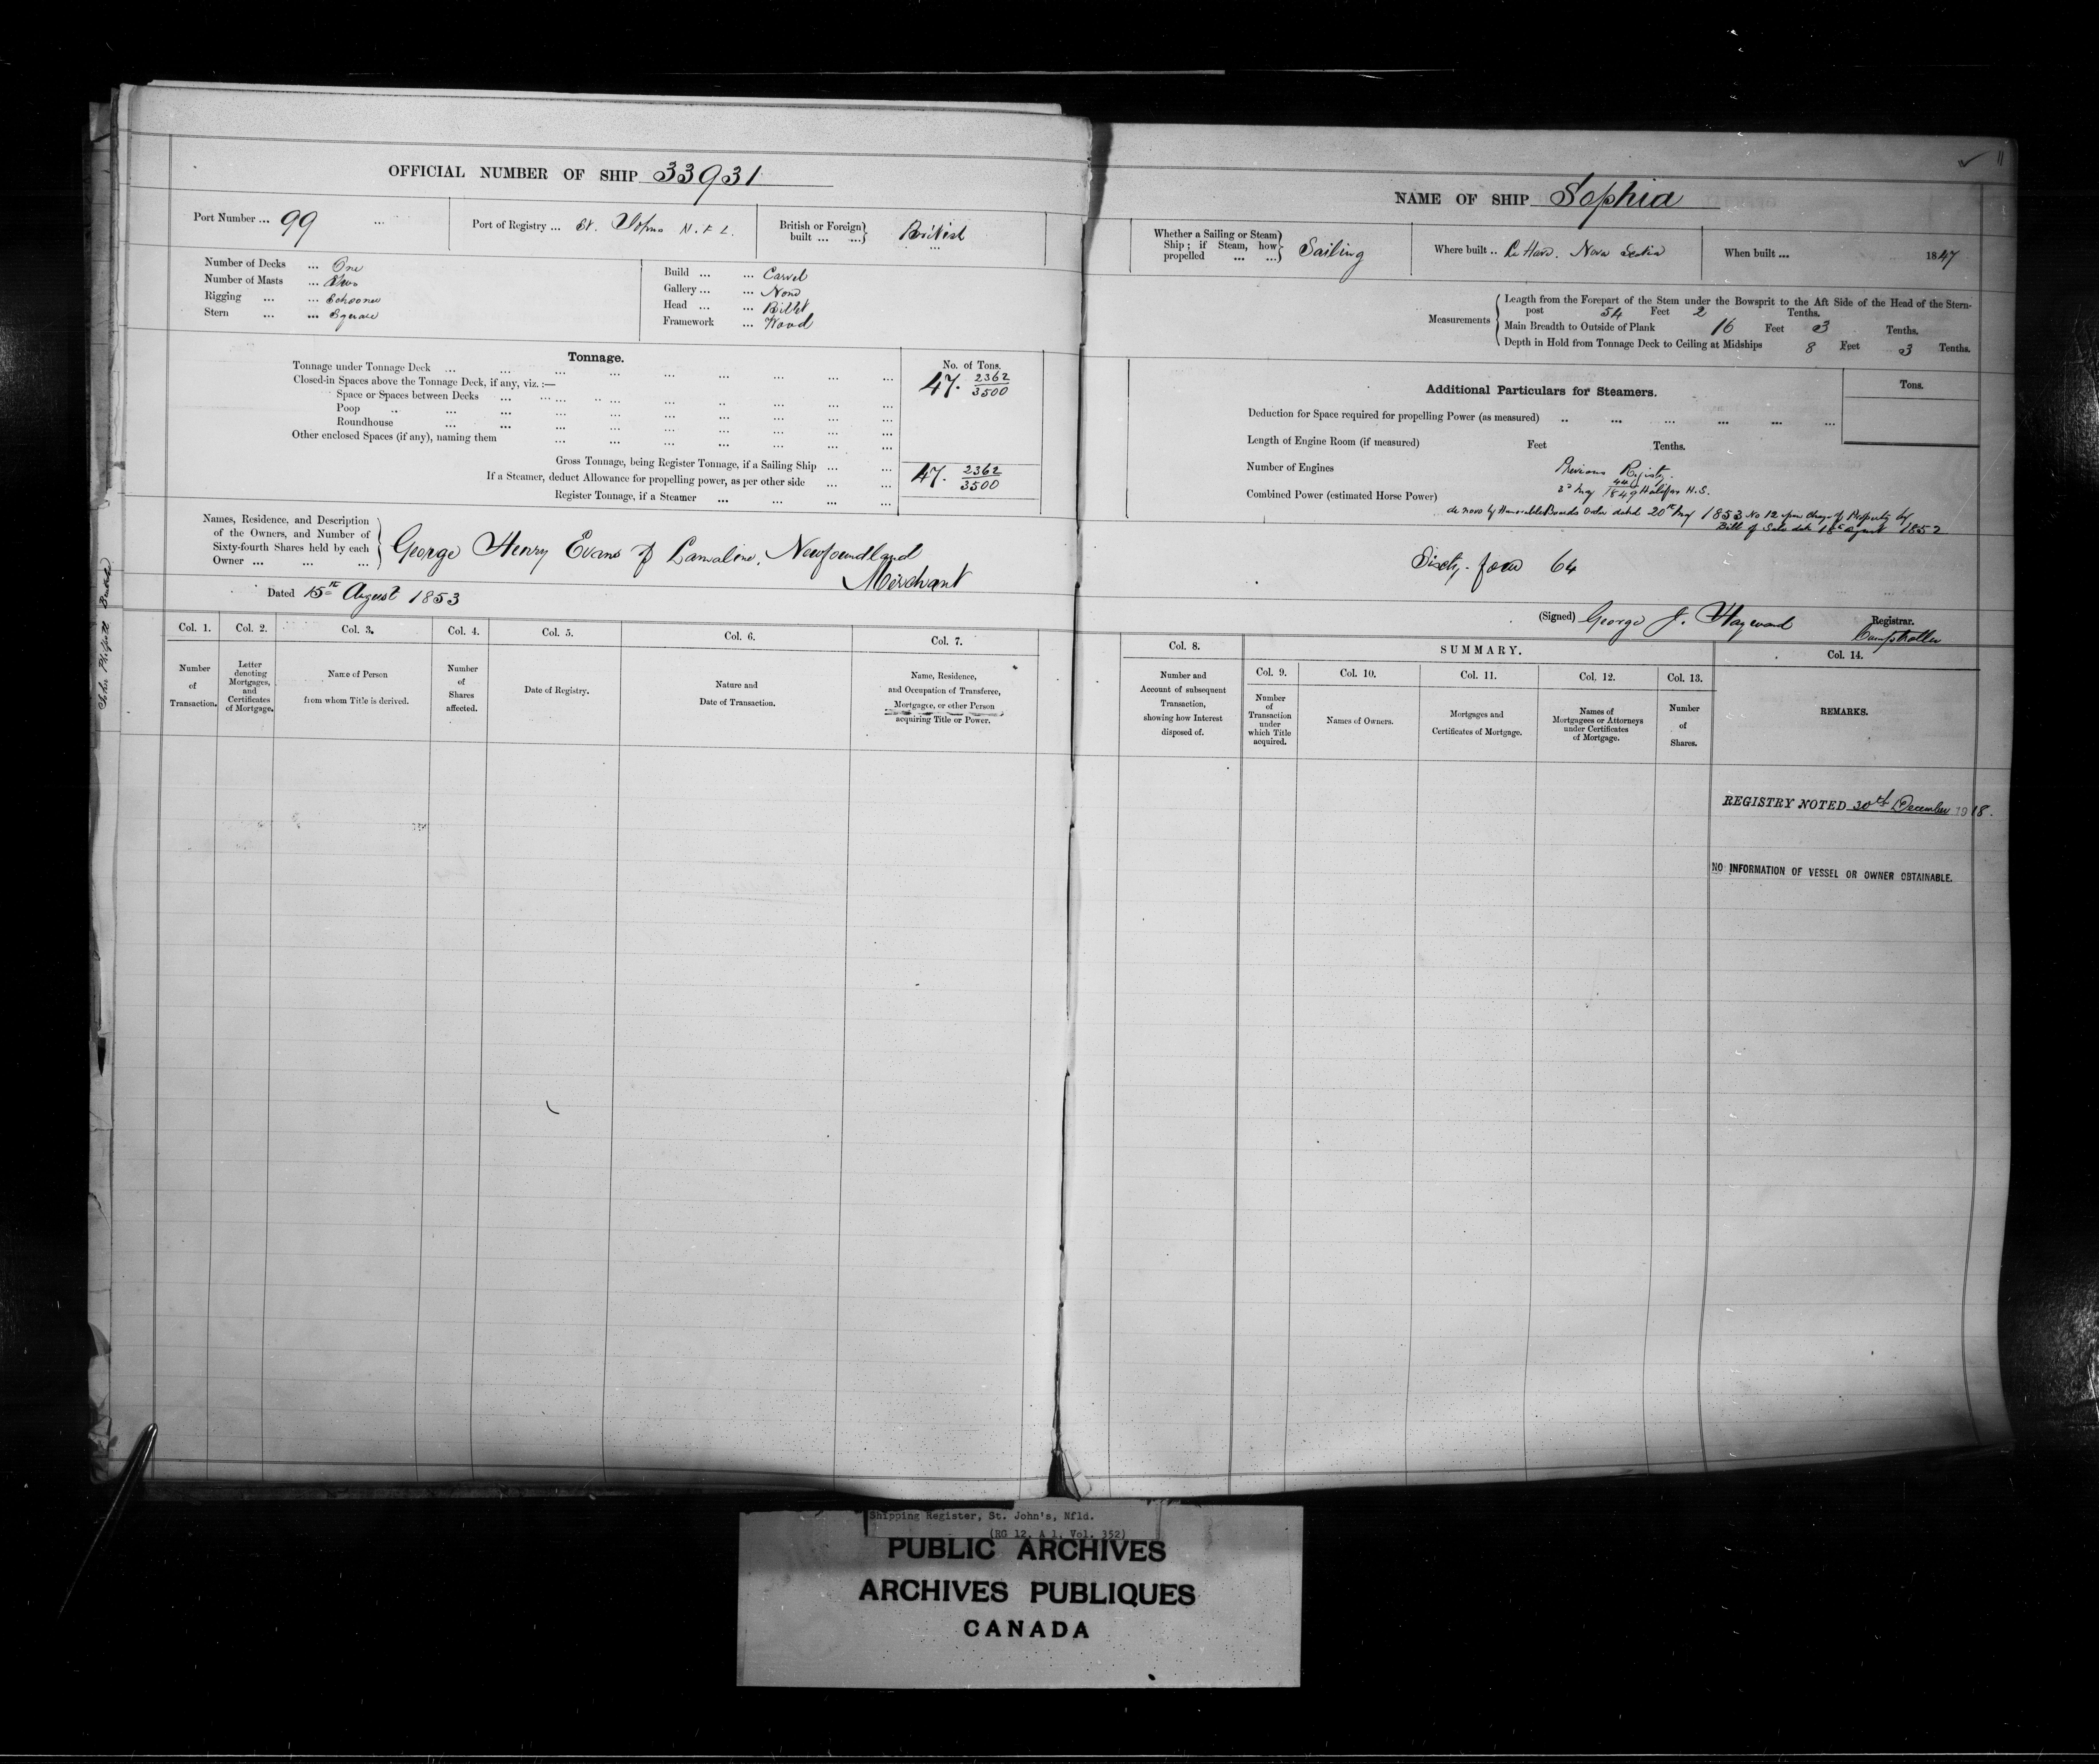 OFFICIAL NUMBER OF SHIP 33931
Port Number ... 99 ...
Port of Registry ... St. Johns N.F.L.
British or Foreign built ... ... British
Number of Decks ... One
Number of Masts ... Two
Rigging ... ... Schooner
Stern ... ... Square
Build ... ... Carvel
Gallery ... ... None
Head ... ... Billet
Framework ... Wood
Tonnage.
No. of Tons.
Tonnage under Tonnage Deck ... 47. 2362/3500
Closed-in Spaces above the Tonnage Deck, if any, viz. :—
Space or Spaces between Decks
Poop
Roundhouse
Other enclosed Spaces (if any), naming them
Gross Tonnage, being Register Tonnage, if a Sailing Ship ... ... 47. 2362/3500
If a Steamer, deduct Allowance for propelling power, as per other side
Register Tonnage, if a Steamer
Names, Residence, and Description
of the Owners, and Number of
Sixty-fourth Shares held by each
Owner ... ... ...
George Henry Evans of Lamaline, Newfoundland
Merchant
Dated 15th August 1853
Col. 1. Col. 2. Col. 3. Col. 4. Col. 5. Col. 6. Col. 7.
Number of Transaction.
Letter denoting Mortgages, and Certificates of Mortgage.
Name of Person from whom Title is derived.
Number of Shares affected.
Date of Registry.
Nature and Date of Transaction.
Name, Residence, and Occupation of Transferee, Mortgagee, or other Person acquiring Title or Power.
11
NAME OF SHIP Sophia
Whether a Sailing or Steam Ship; if Steam, how propelled ... ... Sailing
Where built .. La Have. Nova Scotia
When built ... 1847
Measurements
Length from the Forepart of the Stem under the Bowsprit to the Aft Side of the Head of the Stern-
post 54 Feet 2 Tenths.
Main Breadth to Outside of Plank 16 Feet 3 Tenths.
Depth in Hold from Tonnage Deck to Ceiling at Midships 8 Feet 3 Tenths.
Additional Particulars for Steamers.
Tons.
Deduction for Space required for propelling Power (as measured)
Length of Engine Room (if measured) Feet Tenths.
Number of Engines
Previous Registry.
Combined Power (estimated Horse Power)
3d May 1849 Halifax N.S.
de novo by Honorable Boards Order dated 20th May 1853 No 12 upon change of Property by
Bill of Sale date 18th August 1852
Sixty-four 64
(Signed) George J. Hayward Registrar.
Comptroller
Col. 8.
SUMMARY.
Col. 9. Col. 10. Col. 11. Col. 12. Col. 13. Col. 14.
Number and Account of subsequent Transaction, showing how Interest disposed of.
Number of Transaction under which Title acquired.
Names of Owners.
Mortgages and Certificates of Mortgage.
Names of Mortgagees or Attorneys under Certificates of Mortgage.
Number of Shares.
REMARKS.
REGISTRY NOTED 30th December 1918.
NO INFORMATION OF VESSEL OR OWNER OBTAINABLE.
Shipping Register, St. John's, Nfld.
(RG 12, A 1, Vol. 352)
PUBLIC ARCHIVES
ARCHIVES PUBLIQUES
CANADA